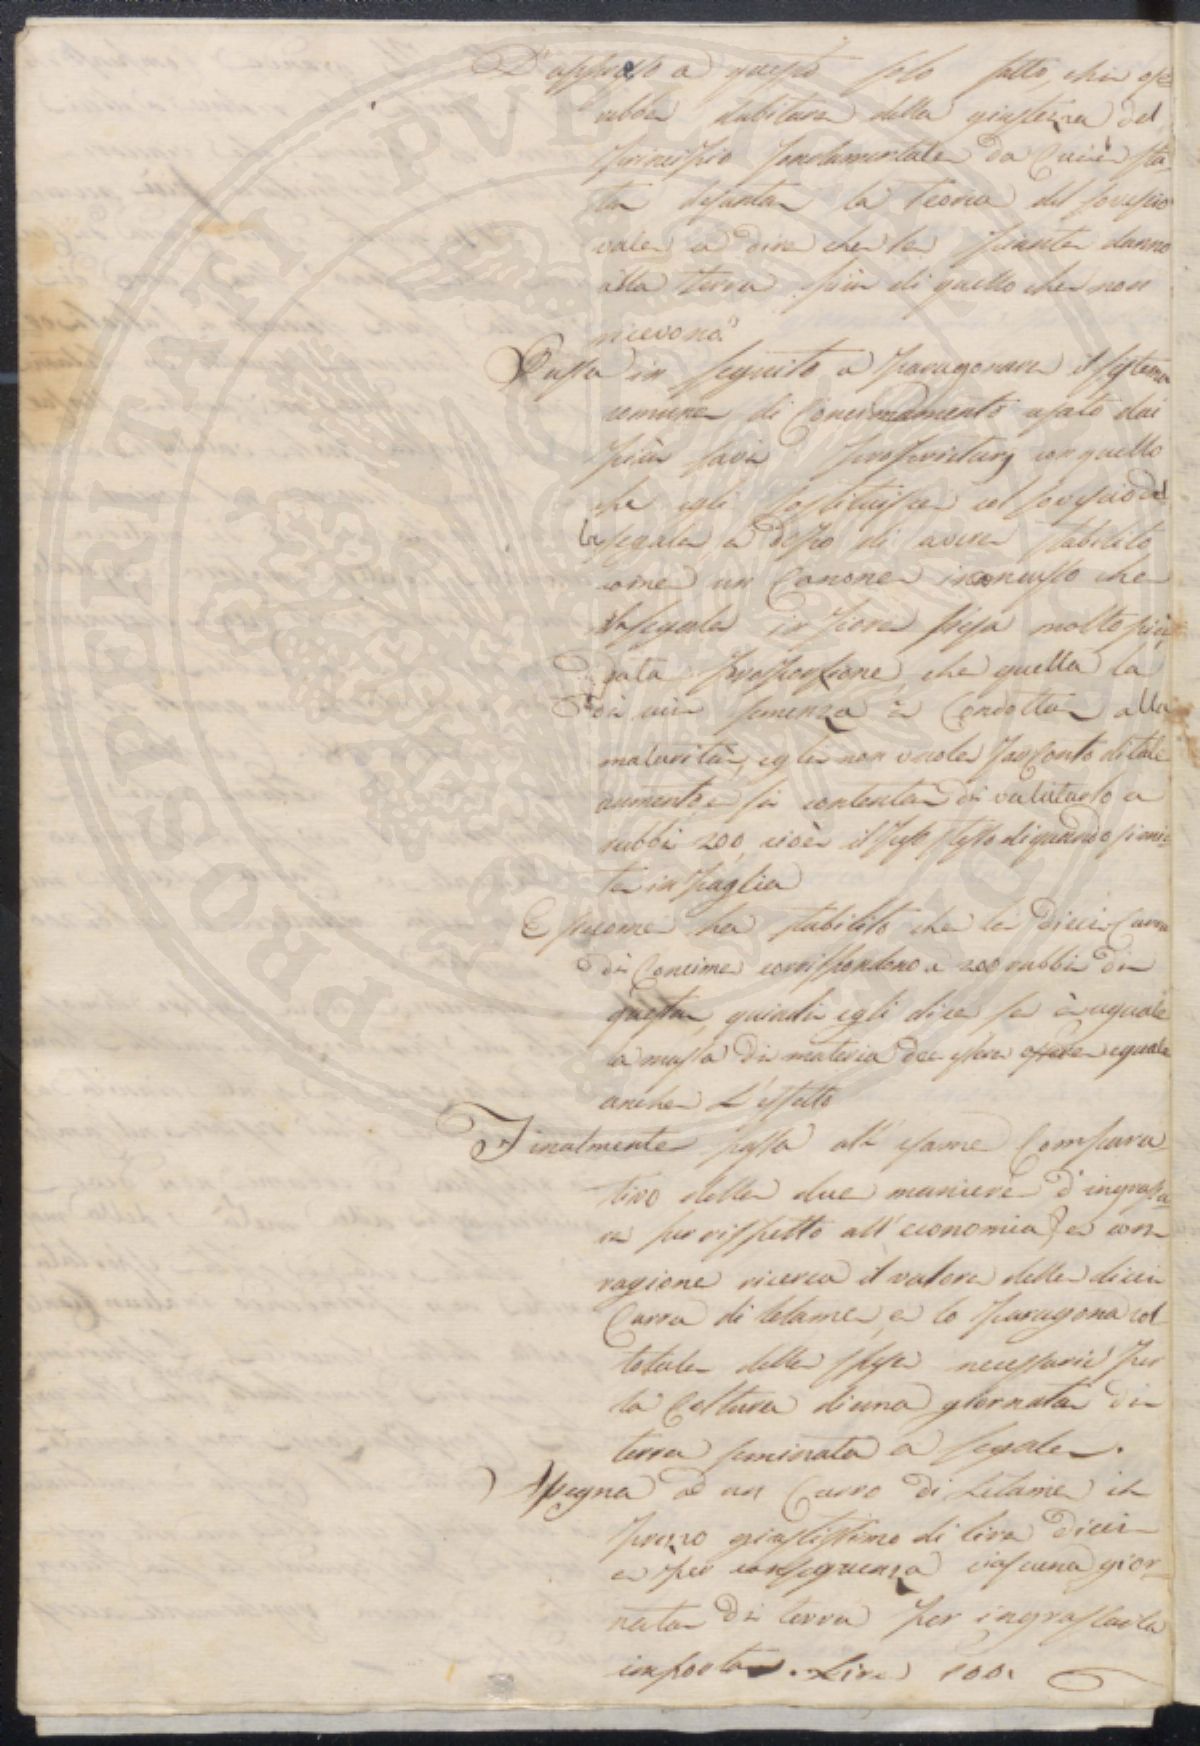 D'appresso a questo solo fatto, chi ose
rebbe dubitare della giustezza del
principio fondamentale da cui è sta
ta desunta la teoria del sovescio
vale a dire che le piante danno
alla terra più di quello che non
ricevono?
Passa in seguito a paragonare il sistema
comune di Concimamento usato dai
più savi proprietarj con quello
che egli sostituisce col sovescio del
la segale, e dopo di avere stabilito
come un Canone inconcusso che
la segale in fiore pesa molto più,
data proporzione, che quella la
di cui semenza è Condotta alla
maturità, egli non vuole far Conto di tale
aumento e si contenta di valutarlo a
rubbi 200, cioè il peso stesso di quando
ta in paglia
E siccome ha stabilito che le dieci Carra
di Concime corrispondono a 200 rubbi di
questa, quindi egli dice se è uguale
la massa di materia dee essere eguale
anche L'effetto
Finalmente passa all'esame Compara
tivo delle due maniere d'ingrassa
re per rispetto all'economia, e con
ragione ricerca il valore delle dieci
Carra di letame, e lo paragona col
totale delle spese necessarie per
la Coltura di una giornata di
terra seminata a segale.
Assegna ad un Carro di Letame il
prezzo giustissimo di lire dieci
e per conseguenza ciascuna gior
nata di terra per ingrassarla
importa. Lire 100.